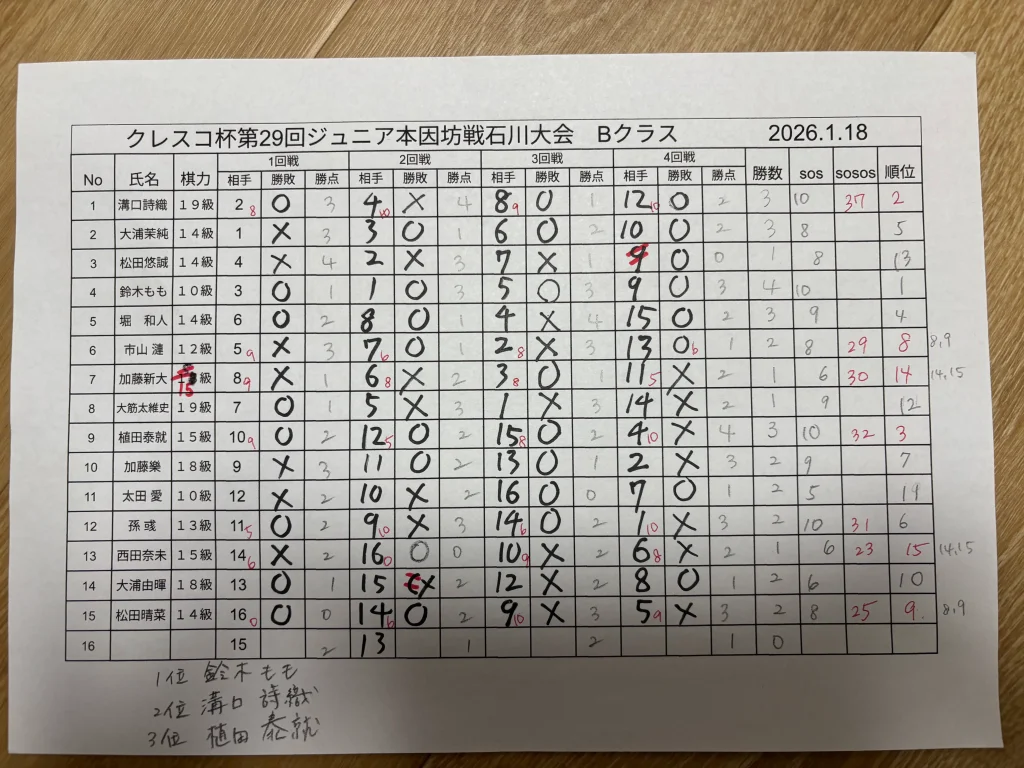 クレスコ杯第29回ジュニア本因坊戦石川大会 Bクラス 2026.1.18
No 氏名 棋力 1回戦 2回戦 3回戦 4回戦 勝数 sos sosos 順位
相手 勝敗 勝点 相手 勝敗 勝点 相手 勝敗 勝点 相手 勝敗 勝点
1 溝口詩織 19級 2 8 O 3 4 10 X 4 8 9 O 1 12 10 O 2 3 10 37 2
2 大浦茉純 14級 1 X 3 3 O 1 6 O 2 10 O 2 3 8 5
3 松田悠誠 14級 4 X 4 2 X 3 7 X 1 O 0 1 8 13
4 鈴木もも 10級 3 O 1 1 O 3 5 O 3 9 O 3 4 10 1
5 堀 和人 14級 6 O 2 8 O 1 4 X 4 15 O 2 3 9 4
6 市山 漣 12級 5 9 X 3 7 6 O 1 2 8 X 3 13 O 6 1 2 8 29 8 8,9
7 加藤新大 15級 8 9 X 1 6 8 X 2 3 8 O 1 11 5 X 2 1 6 30 14 14,15
8 大筋太維史 19級 7 O 1 5 X 3 1 X 3 14 X 2 1 9 12
9 植田泰就 15級 10 9 O 2 12 5 O 2 15 8 O 2 4 10 X 4 3 10 32 3
10 加藤樂 18級 9 X 3 11 O 2 13 O 1 2 X 3 2 9 7
11 太田 愛 10級 12 X 2 10 X 2 16 O 0 7 O 1 2 5 11
12 孫 彧 13級 11 5 O 2 9 10 X 3 14 6 O 2 1 10 X 3 2 10 31 6
13 西田奈未 15級 14 6 X 2 16 0 O 0 10 9 X 2 6 8 X 2 1 6 23 15 14,15
14 大浦由暉 18級 13 O 1 15 X 2 12 X 2 8 O 1 2 6 10
15 松田晴菜 14級 16 0 O 0 14 6 O 2 9 10 X 3 5 9 X 3 2 8 25 9. 8,9
16 15 2 13 1 2 1 0
1位 鈴木もも
2位 溝口 詩織
3位 植田 泰就